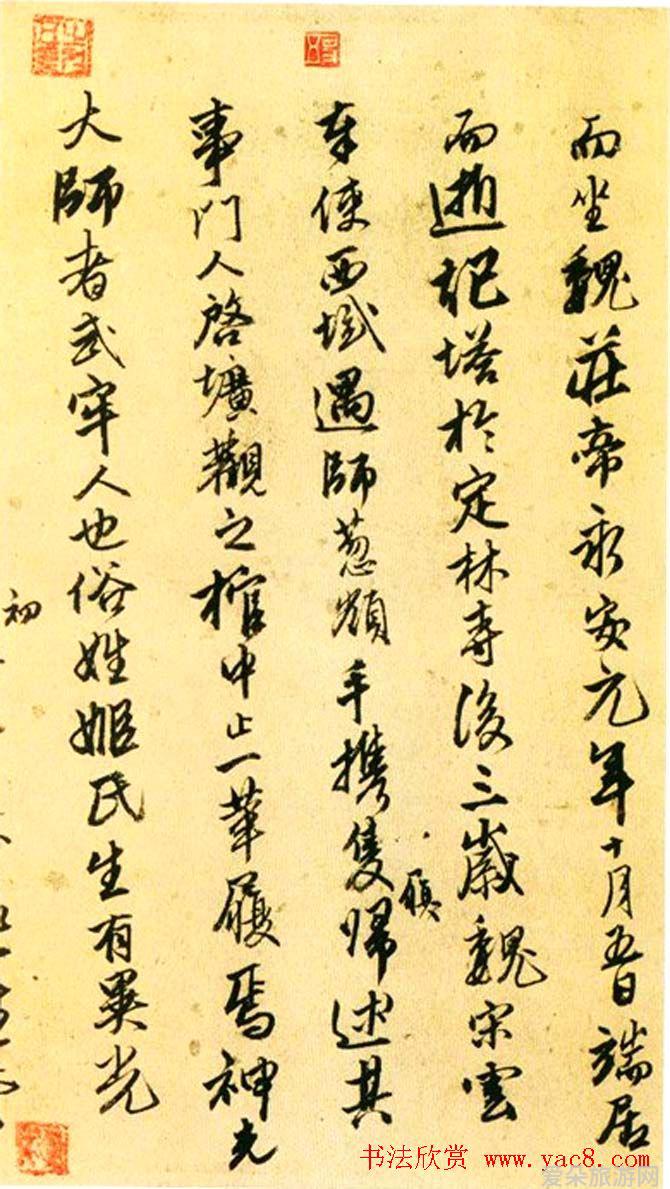 而坐魏莊帝永安元年十月五日端居
而逝記塔於定林寺後三歲魏宋雲
奉使西域遇師葱嶺手攜隻歸述其
履
事門人啓壙觀之棺中止一革履焉神光
大師者武牢人也俗姓姬氏生有異光
初
书法欣赏 www.yac8.com
爱朵旅游网